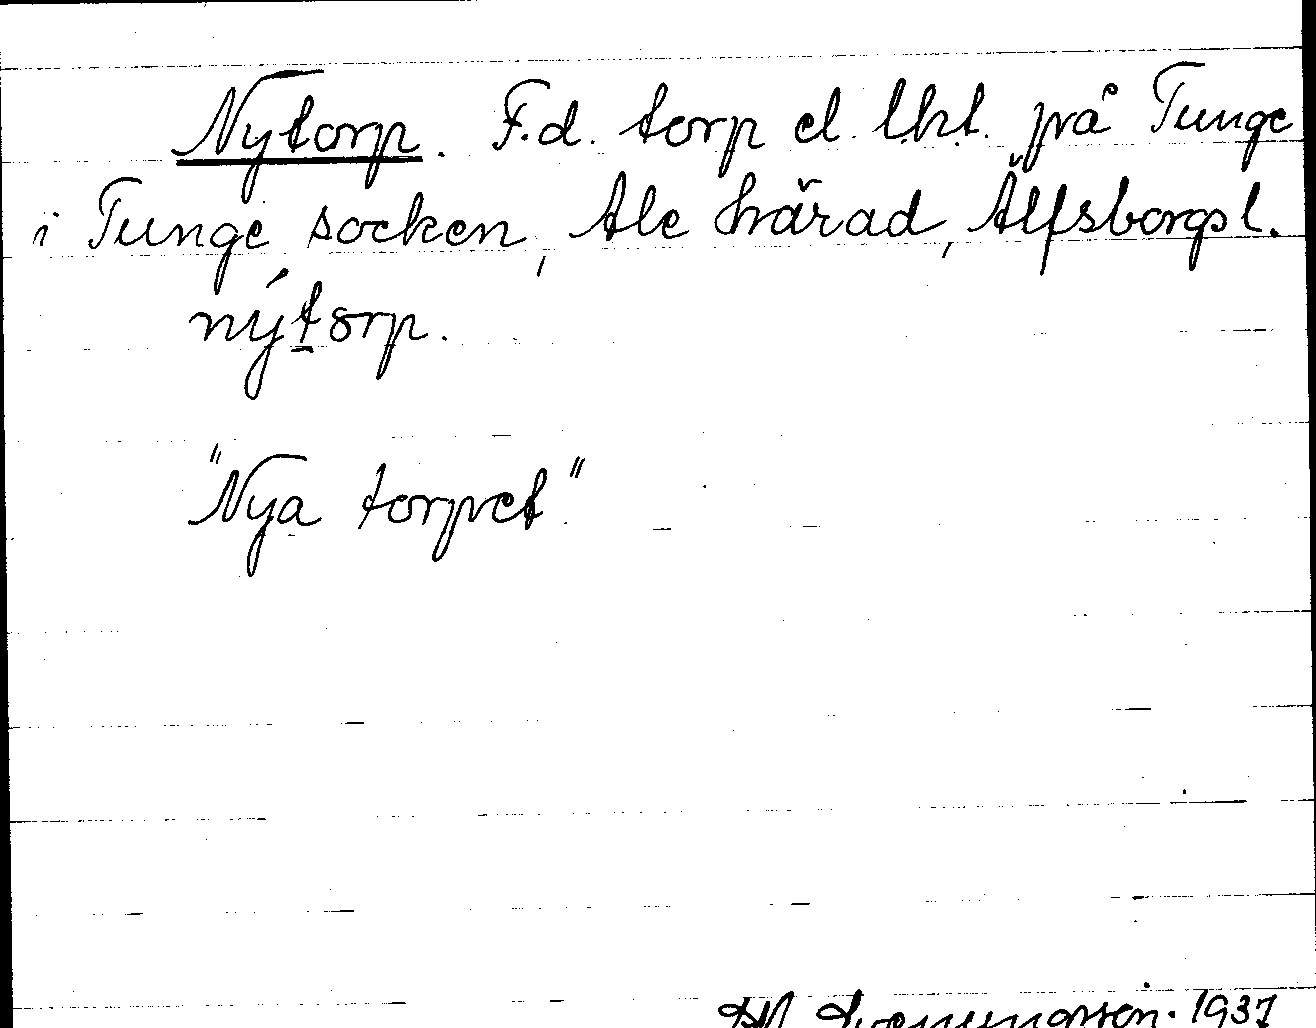 Nytorp. F.d. torp el. lht. på Tunge
i Tunge socken, Ale härad, Älfsborgs l.
nýtorp.
"Nya torpet"
1937